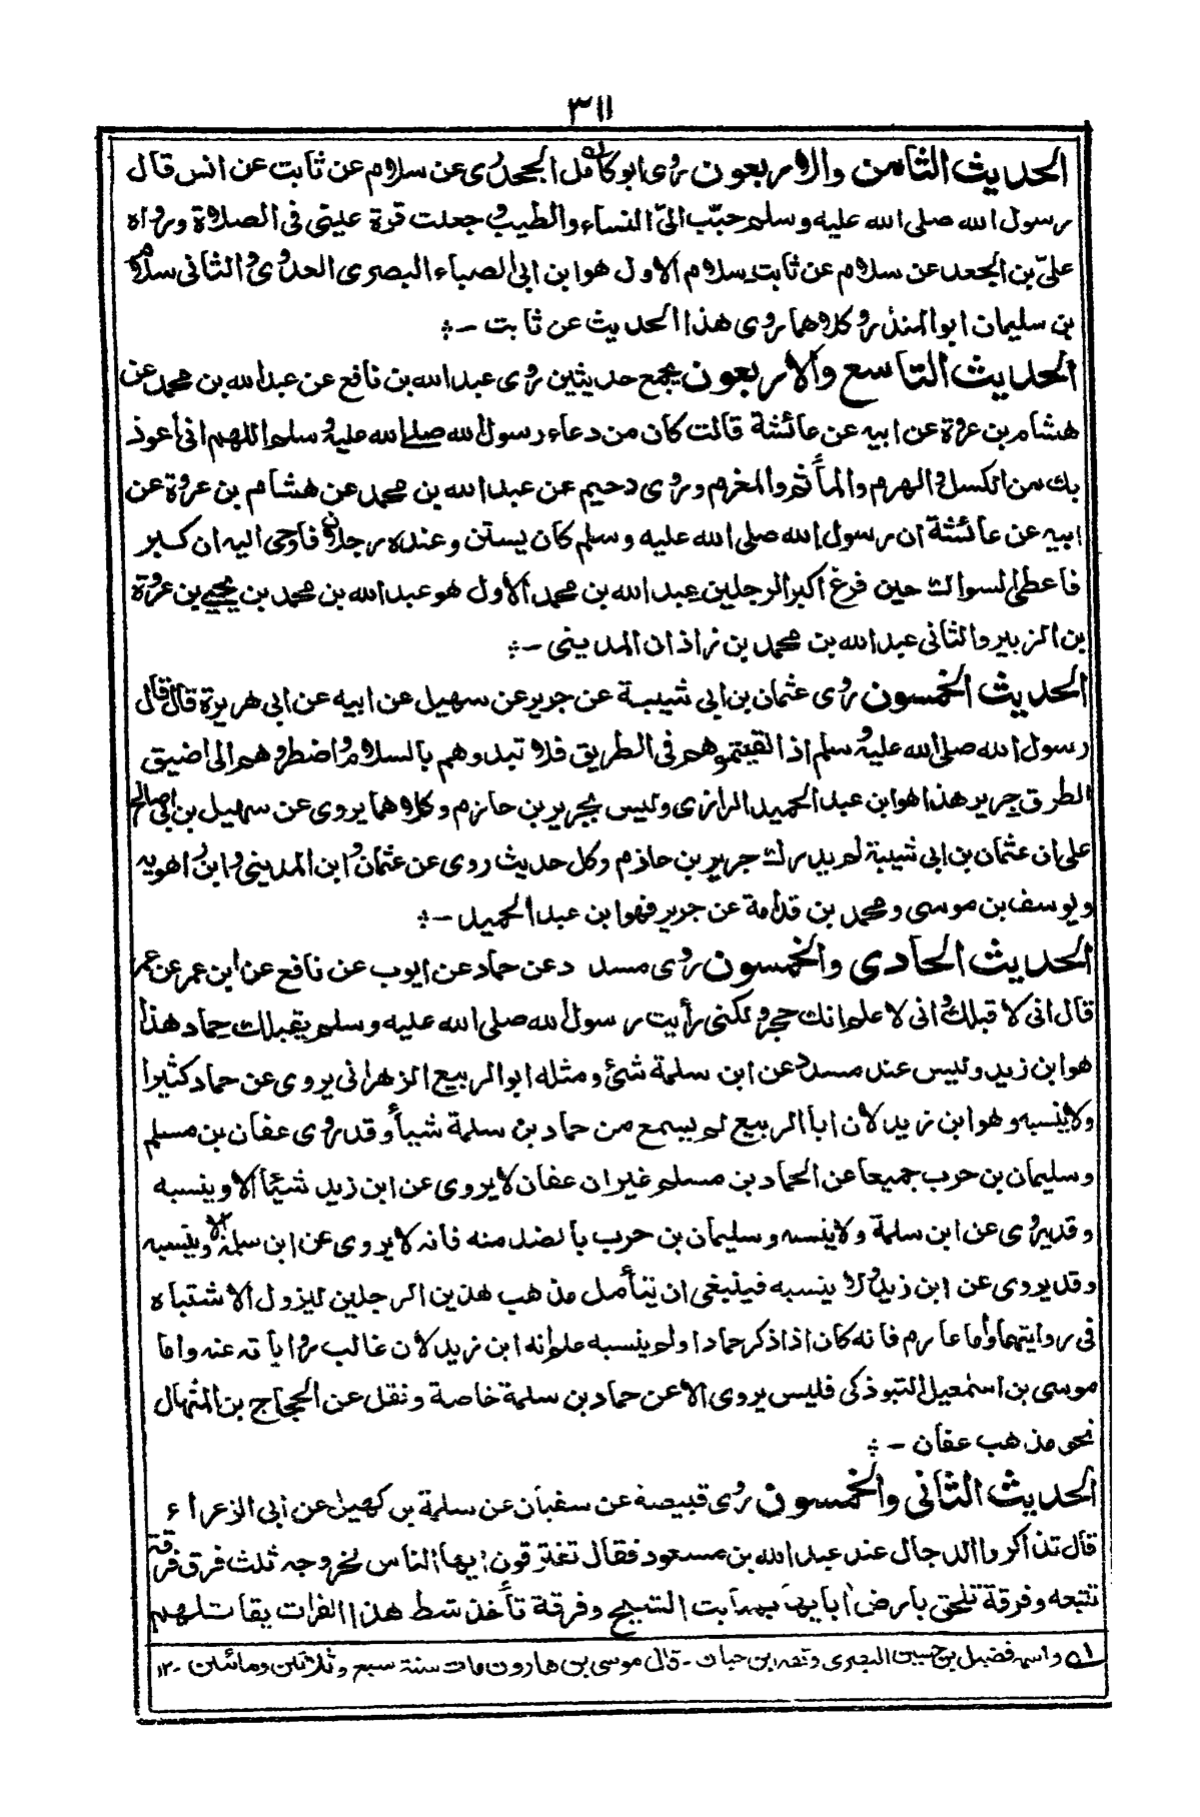 ٣١١
الحديث الثامن والاربعون روى ابو كامل الجحدرى عن سلام عن ثابت عن انس قال
رسول الله صلى الله عليه وسلم حبّب الىّ النساء والطيب وجعلت قرة عينى فى الصلاة ورواه
علىّ بن الجعد عن سلام عن ثابت سلام الاول هو ابن ابى الصباء البصرى العدوى والثانى سلام
بن سليمان ابو المنذر وكلاهما روى هذا الحديث عن ثابت -
الحديث التاسع والاربعون يجمع حديثين روى عبد الله بن نافع عن عبد الله بن محمد عن
هشام بن عروة عن ابيه عن عائشة قالت كان من دعاء رسول الله صلى الله عليه وسلم اللهم انى أعوذ
بك من الكسل والهرم والمأثم والمغرم وروى دحيم عن عبد الله بن محمد عن هشام بن عروة عن
ابيه عن عائشة ان رسول الله صلى الله عليه وسلم كان يستن وعنده رجلان فاوحى اليه ان كبر
فاعطى السواك حين فرغ اكبر الرجلين عبد الله بن محمد الأول هو عبد الله بن محمد بن يحيى بن عروة
بن الزبير والثانى عبد الله بن محمد بن زاذان المدينى -
الحديث الخمسون روى عثمان بن ابى شيبة عن جرير عن سهيل عن ابيه عن ابى هريرة قال قال
رسول الله صلى الله عليه وسلم اذا لقيتموهم فى الطريق فلا تبدوهم بالسلام واضطروهم الى اضيق
الطرق جرير هذا هو ابن عبد الحميد الرازى وليس بجرير بن حازم وكلاهما يروى عن سهيل بن ابى صالح
على ان عثمان بن ابى شيبة لم يدرك جرير بن حازم وكل حديث روى عن عثمان وابن المدينى وابن راهويه
ويوسف بن موسى ومحمد بن قدامة عن جرير فهو ابن عبد الحميد -
الحديث الحادى والخمسون روى مسدد عن حماد عن ايوب عن نافع عن ابن عمر عن عمر
قال انى لاقبلك وانى لاعلم انك حجر ولكنى رأيت رسول الله صلى الله عليه وسلم يقبلك حماد هذا
هو ابن زيد وليس عند مسدد عن ابن سلمة شئ ومثله ابو الربيع الزهرانى يروى عن حماد كثيرا
ولا ينسبه وهو ابن زيد لان ابا الربيع لم يسمع من حماد بن سلمة شيأ وقد روى عفان بن مسلم
وسليمان بن حرب جميعا عن الحماد بن مسلم غير ان عفان لا يروى عن ابن زيد شيئا الا وينسبه
وقد يروى عن ابن سلمة ولا ينسبه وسليمان بن حرب بالضد منه فانه لا يروى عن ابن سلمة الا وينسبه
وقد يروى عن ابن زيد ولا ينسبه فينبغى ان يتأمل مذهب هذين الرجلين ليزول الاشتباه
فى روايتهما وأما عارم فانه كان اذا ذكر حمادا ولم ينسبه علم انه ابن زيد لان غالب رواياته عنه واما
موسى بن اسمعيل التبوذكى فليس يروى الا عن حماد بن سلمة خاصة ونقل عن الحجاج بن المنهال
نحو مذهب عفان -
الحديث الثانى والخمسون روى قبيصة عن سفيان عن سلمة بن كهيل عن ابى الزعراء
قال تذاكروا الدجال عند عبد الله بن مسعود فقال تفترقون ايها الناس لخروجه ثلث فرق فرقة
تتبعه وفرقة تلحق بارض ابايها بمنابت الشيح وفرقة تأخذ شط هذا الفرات يقاتلهم
١ه واسمه فضيل بن حسين البصرى وثقه ابن حبان - قال موسى بن هارون مات سنة سبع وثلاثين ومائتين - ١٢